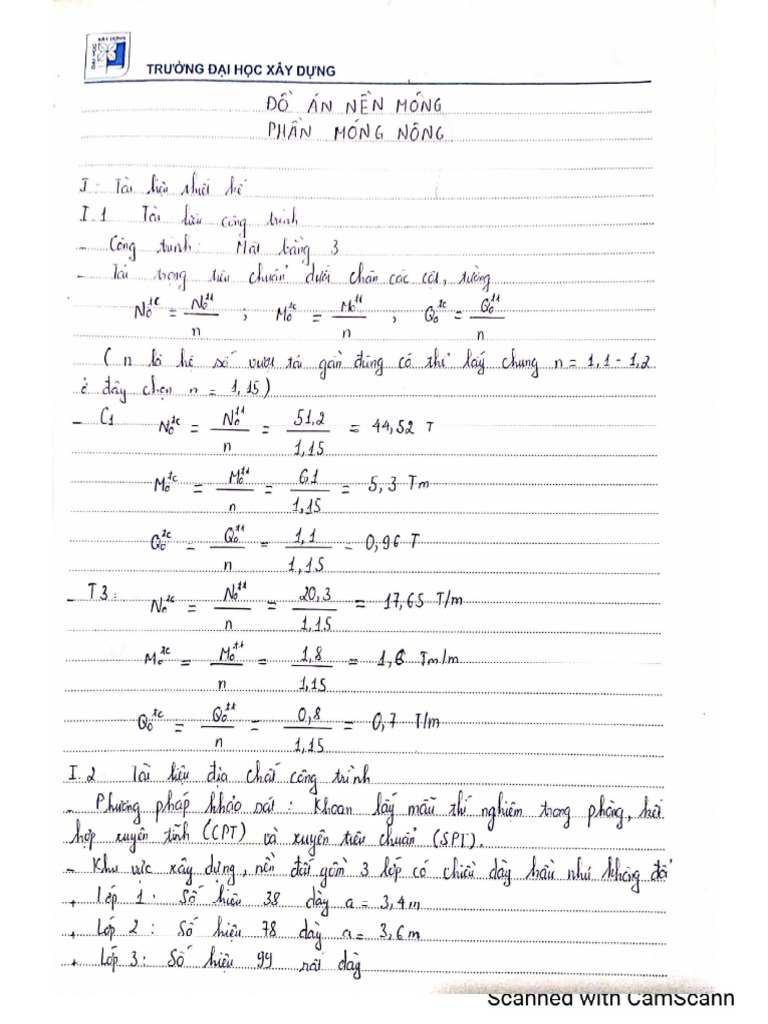 ĐẠI HỌC
XÂY DỰNG
TRƯỜNG ĐẠI HỌC XÂY DỰNG
ĐỒ ÁN NỀN MÓNG
PHẦN MÓNG NÔNG
I - Tài liệu thiết kế
I.1 Tài liệu công trình
- Công trình: Mặt bằng 3
- Tải trọng tiêu chuẩn dưới chân các cột, tường
N₀ᵗᶜ = N₀ᵗᵗ / n ; M₀ᵗᶜ = M₀ᵗᵗ / n ; Q₀ᵗᶜ = Q₀ᵗᵗ / n
( n là hệ số vượt tải gần đúng có thể lấy chung n = 1,1 - 1,2
ở đây chọn n = 1,15)
- C1 N₀ᵗᶜ = N₀ᵗᵗ / n = 51,2 / 1,15 = 44,52 T
M₀ᵗᶜ = M₀ᵗᵗ / n = 6,1 / 1,15 = 5,3 Tm
Q₀ᵗᶜ = Q₀ᵗᵗ / n = 1,1 / 1,15 = 0,96 T
- T3: N₀ᵗᶜ = N₀ᵗᵗ / n = 20,3 / 1,15 = 17,65 T/m
M₀ᵗᶜ = M₀ᵗᵗ / n = 1,8 / 1,15 = 1,6 Tm/m
Q₀ᵗᶜ = Q₀ᵗᵗ / n = 0,8 / 1,15 = 0,7 T/m
I.2 Tài liệu địa chất công trình
- Phương pháp khảo sát: Khoan lấy mẫu thí nghiệm trong phòng, kết
hợp xuyên tĩnh (CPT) và xuyên tiêu chuẩn (SPT).
- Khu vực xây dựng, nền đất gồm 3 lớp có chiều dày hầu như không đổi
+ Lớp 1: Số hiệu 38 dày a = 3,4m
+ Lớp 2: Số hiệu 78 dày a = 3,6m
+ Lớp 3: Số hiệu 99 rất dày
Scanned with CamScann